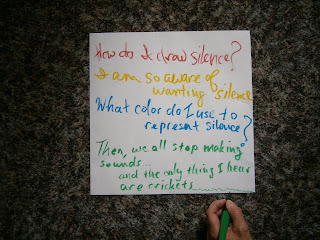 How do I draw silence?
I am so aware of
wanting silence
What color do I use to
represent silence?
Then, we all stop making
sounds...
and the only thing I hear
are crickets